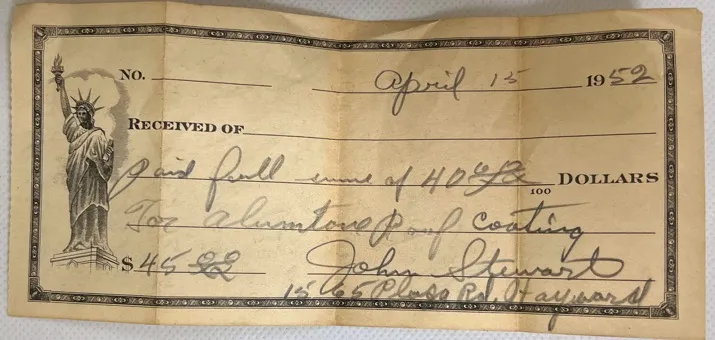 No. April 15 1952
Received of
paid full sume of 40 00/100 Dollars
For alumtone Roof coating
$ 45 00 John Stewart
Rd. Hayward